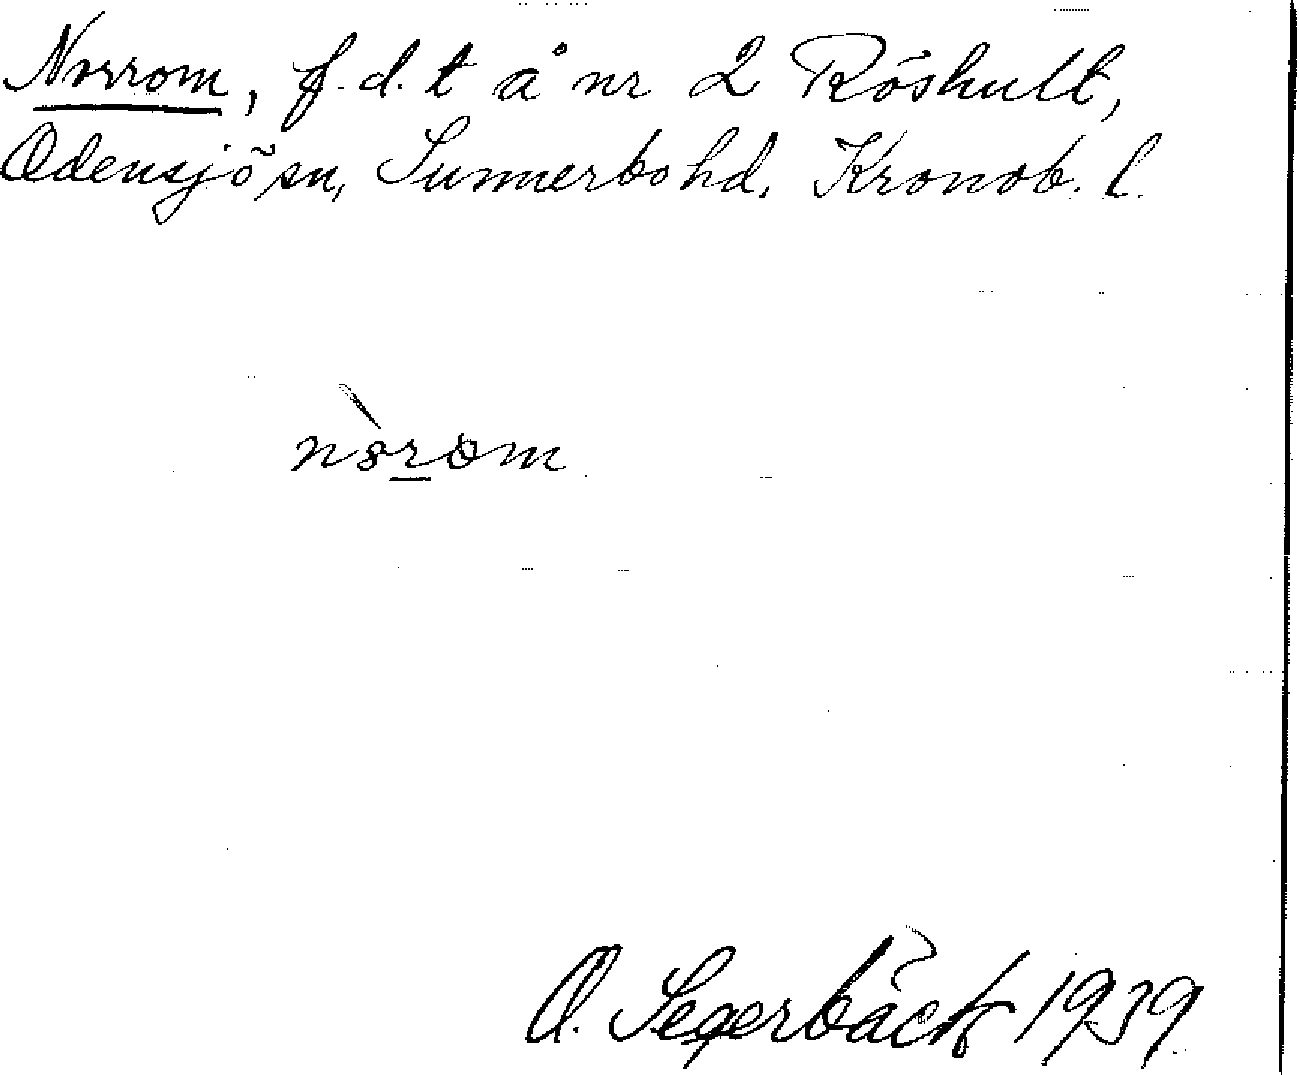 Norrom, f.d.t å nr 2 Röshult,
Odensjö sn, Sunnerbo hd, Kronob. l.
nòrom
O. Segerbäck 1939